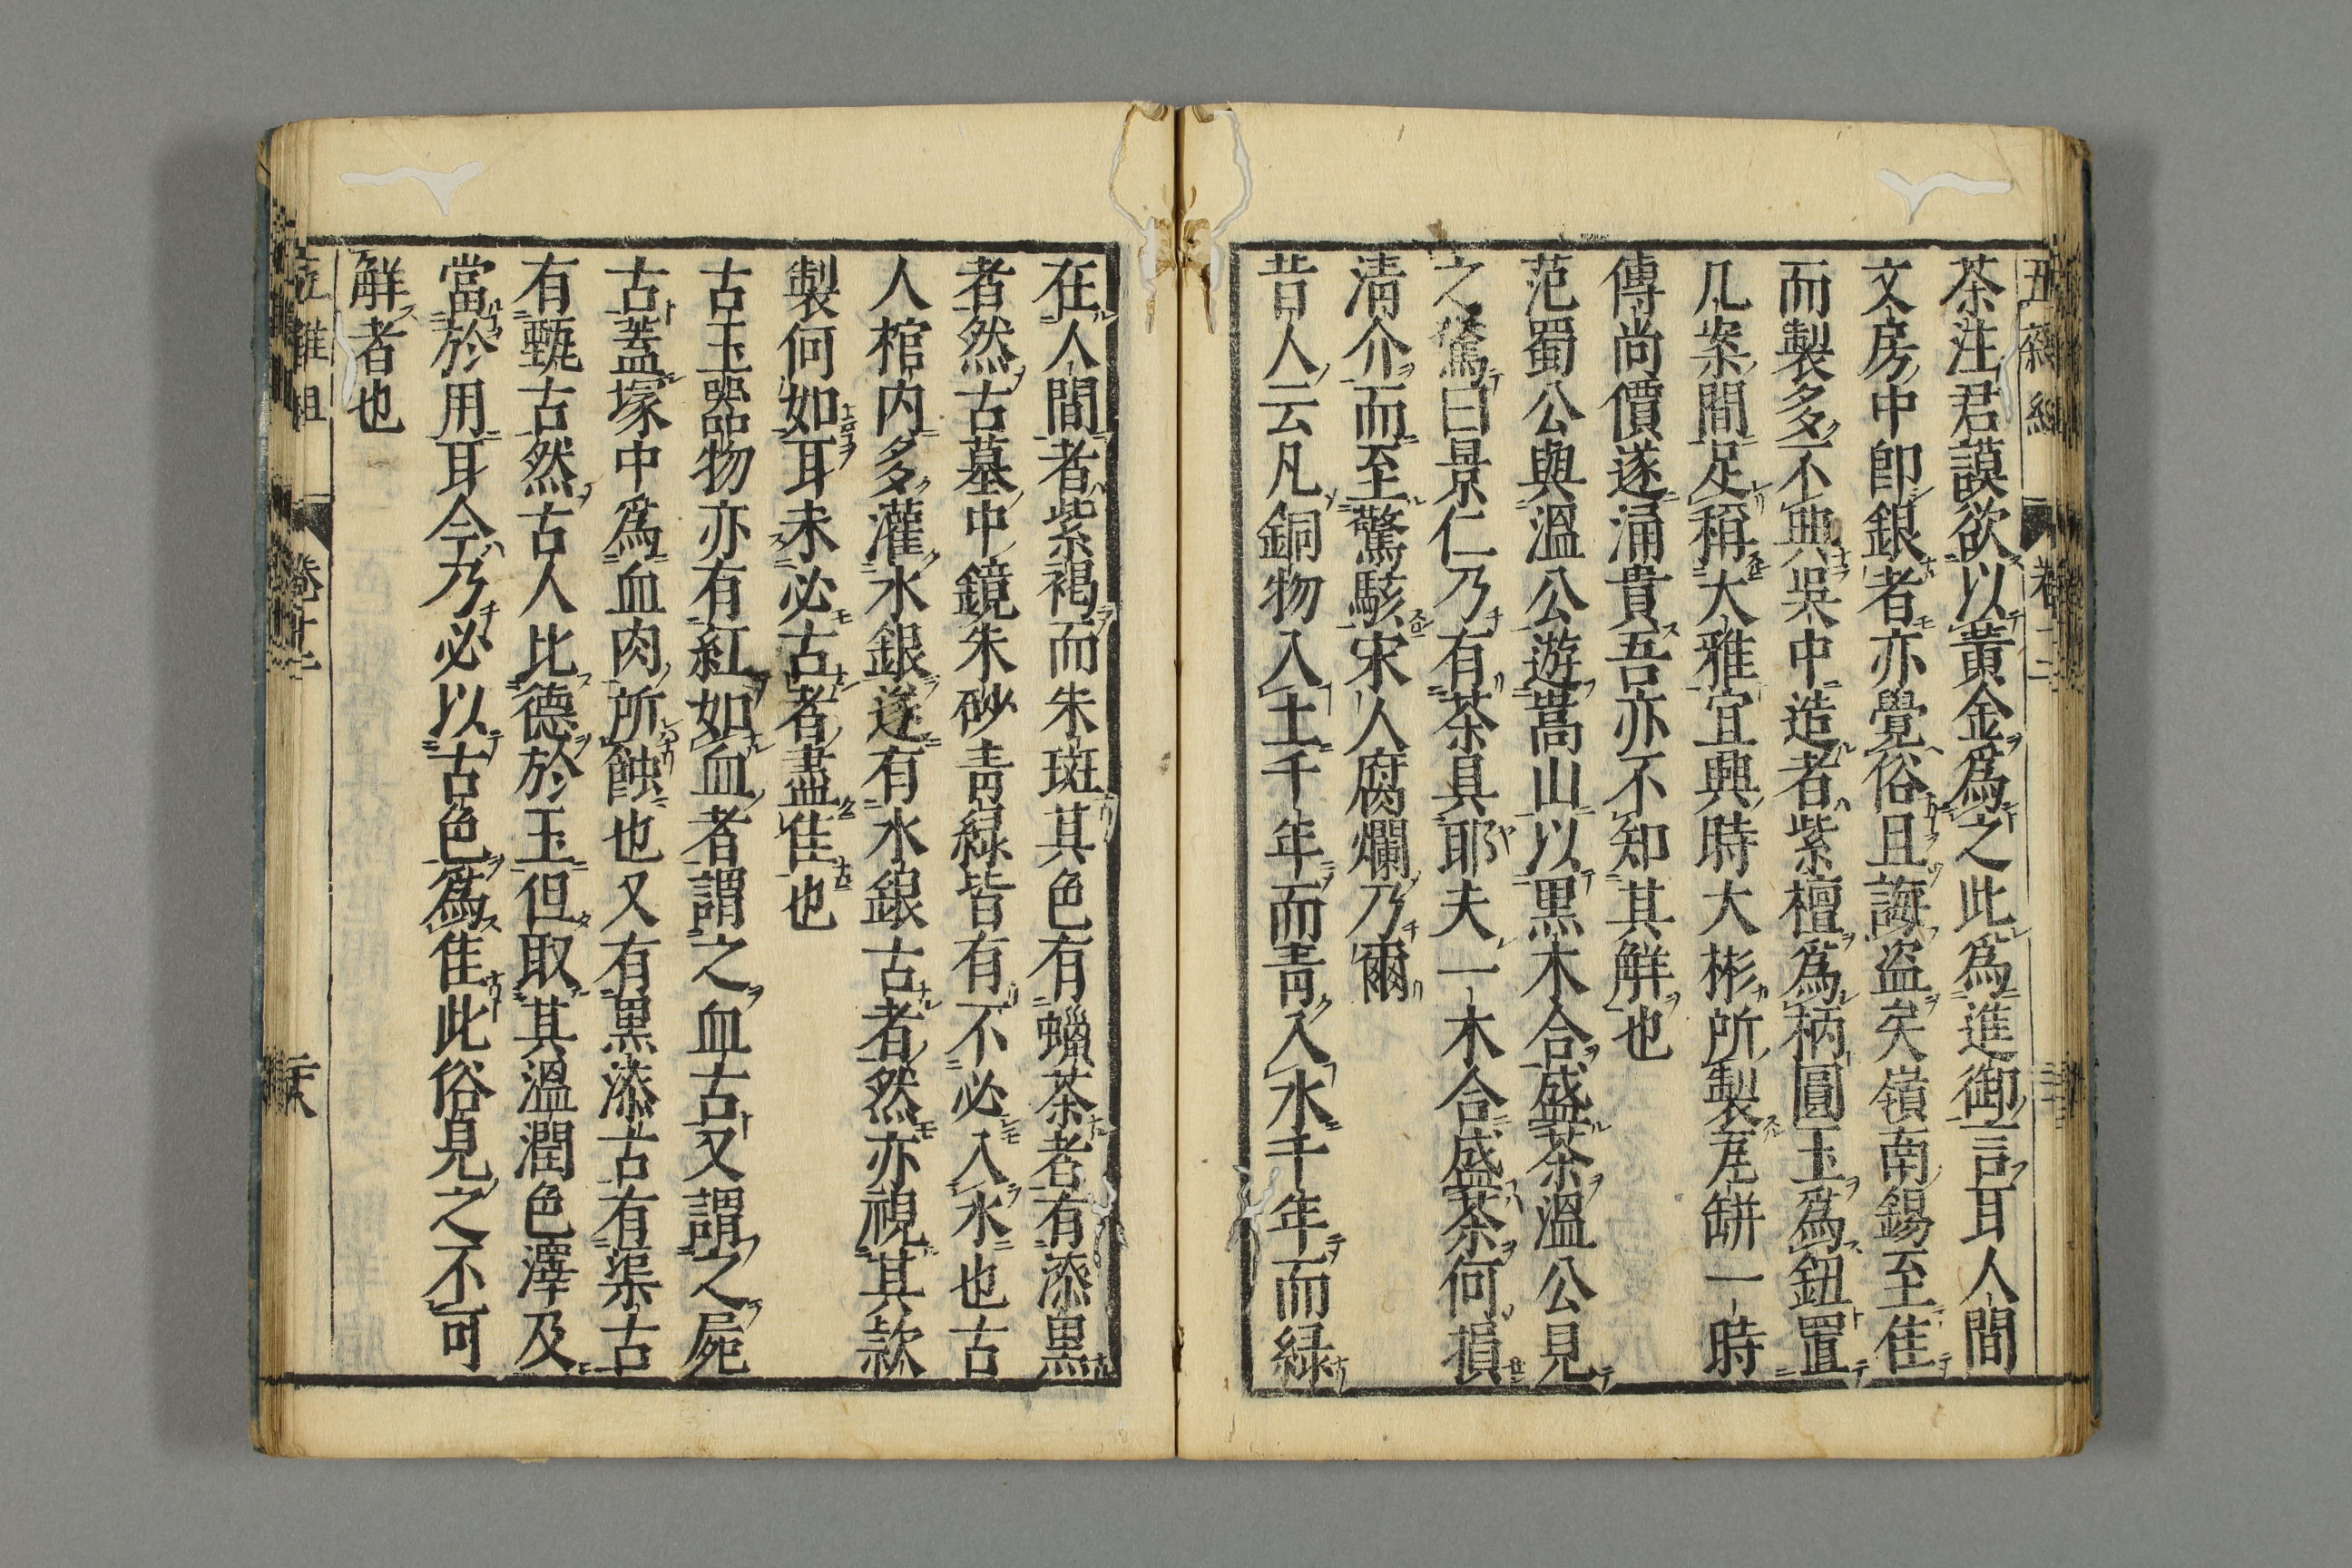 茶注君謨欲以黃金爲之此爲進御言耳人間
文房中卽銀者亦覺俗且誨盜矣嶺南錫至佳
而製多不典吳中造者紫檀爲柄圓玉爲鈕置
几案間足稱大雅宜興時大彬所製瓦缾一時
傳尚價遂涌貴吾亦不知其解也
范蜀公與溫公遊嵩山以黑木合盛茶溫公見
之驚曰景仁乃有茶具耶夫一木合盛茶何損
淸介而至驚駭宋人腐爛乃爾
昔人云凡銅物入土千年而靑入水千年而綠
在人間者紫褐而朱斑其色有蠟茶者有漆黑
者然古墓中鏡朱砂靑綠皆有不必入水也古
人棺內多灌水銀遂有水銀古者然亦視其款
製何如耳未必古者盡佳也
古玉器物亦有紅如血者謂之血古又謂之屍
古蓋塚中爲血肉所蝕也又有黑漆古有渠古
有甄古然古人比德於玉但取其溫潤色澤及
當於用耳今乃必以古色爲佳此俗見之不可
解者也
卷十二